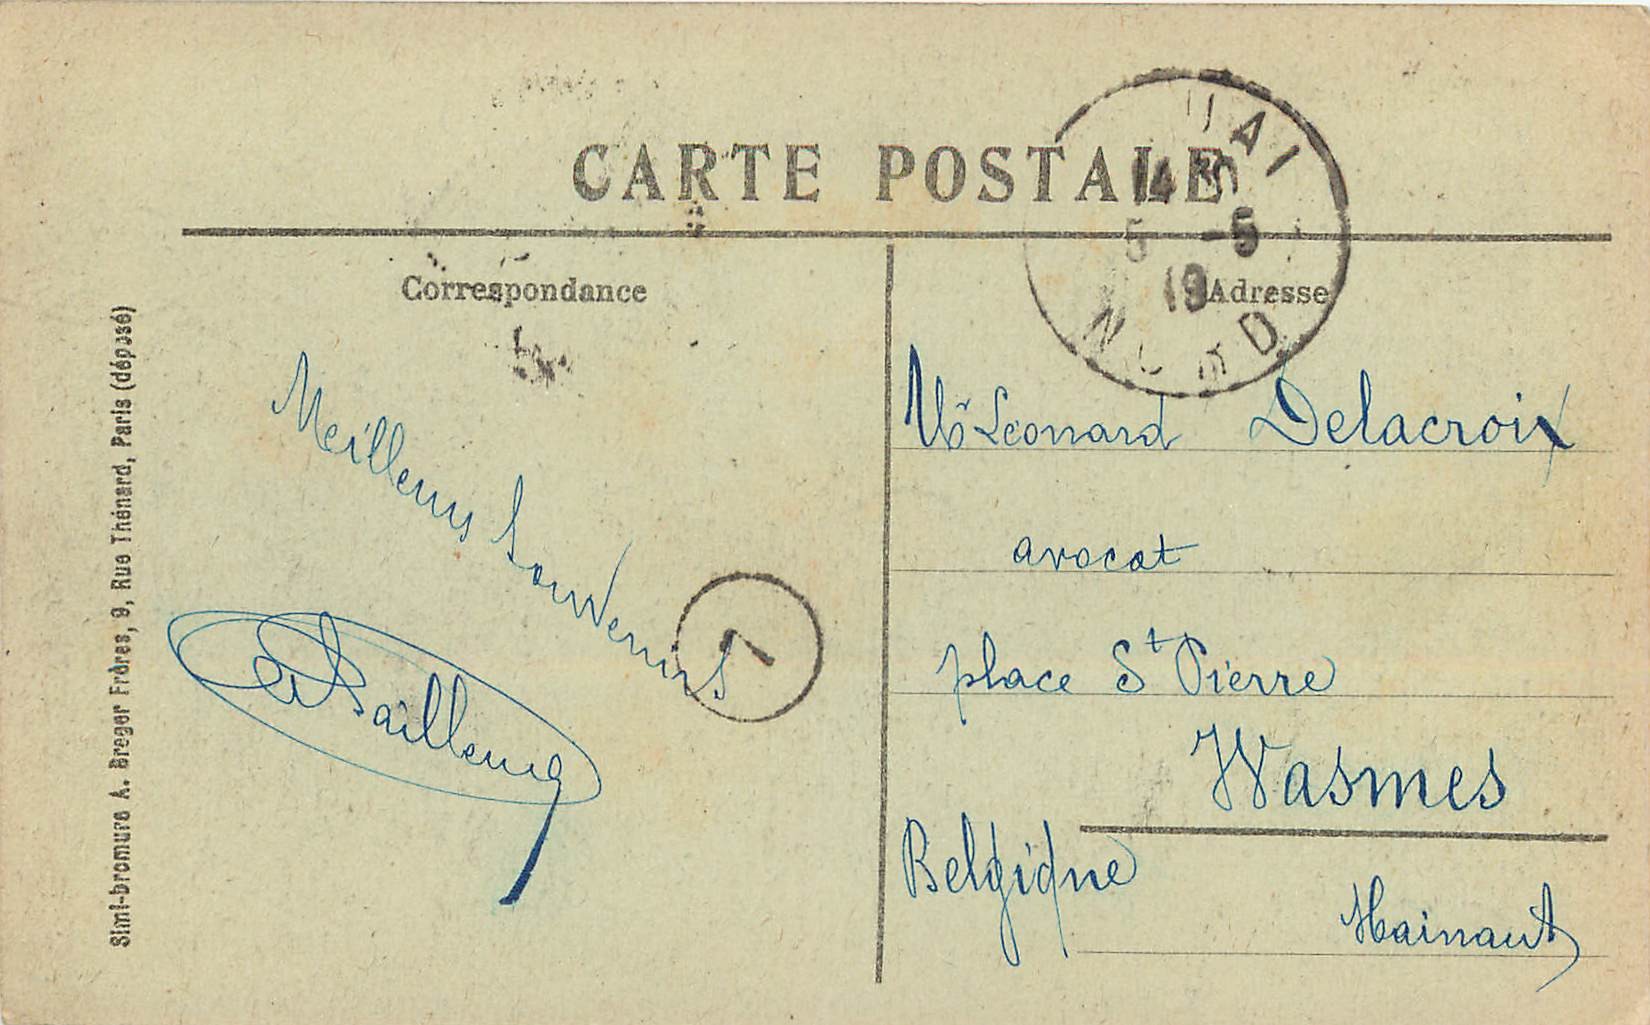 CARTE POSTALE
Correspondance
Adresse
AI
14
5 -5
19
N D
Meilleurs Souvenirs
Mr Leonard Delacroix
avocat
place St Pierre
Wasmes
Belgique
Hainaut
Simi-bromure A. Breger Frères, 9, Rue Thénard, Paris (déposé)